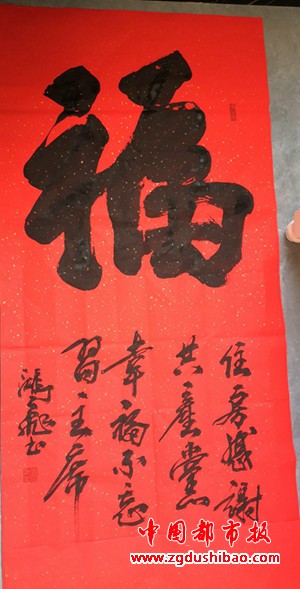 福
住房感謝
共產黨
幸福不忘
習主席
中国都市报
www.zgdushibao.com